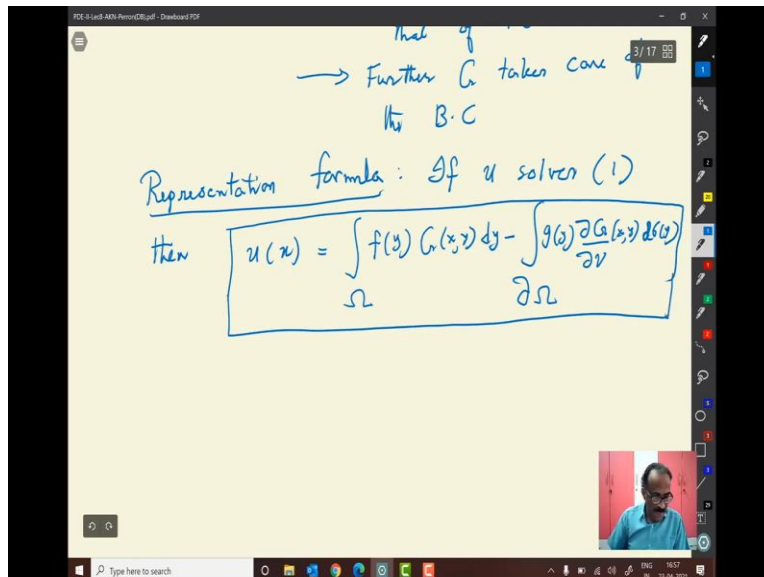 PDE-II-Lec8-AKN-Perron(DB).pdf - Drawboard PDF
that of
3/17
→ Further G takes care of
the B.C
Representation formula : If u solves (1)
then u(x) = ∫ f(y) G(x,y) dy - ∫ g(y) ∂G/∂ν (x,y) dσ(y)
Ω ∂Ω
Type here to search
ENG 16:57
IN